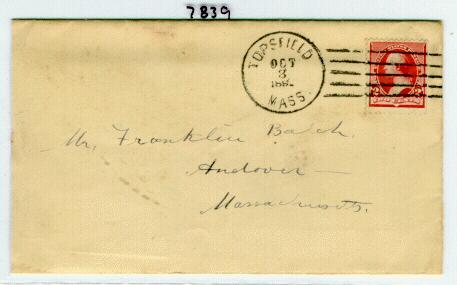 7839
TOPSFIELD
OCT
3
MASS.
Mr. Franklin Balch.
Andover —
Massachusetts.